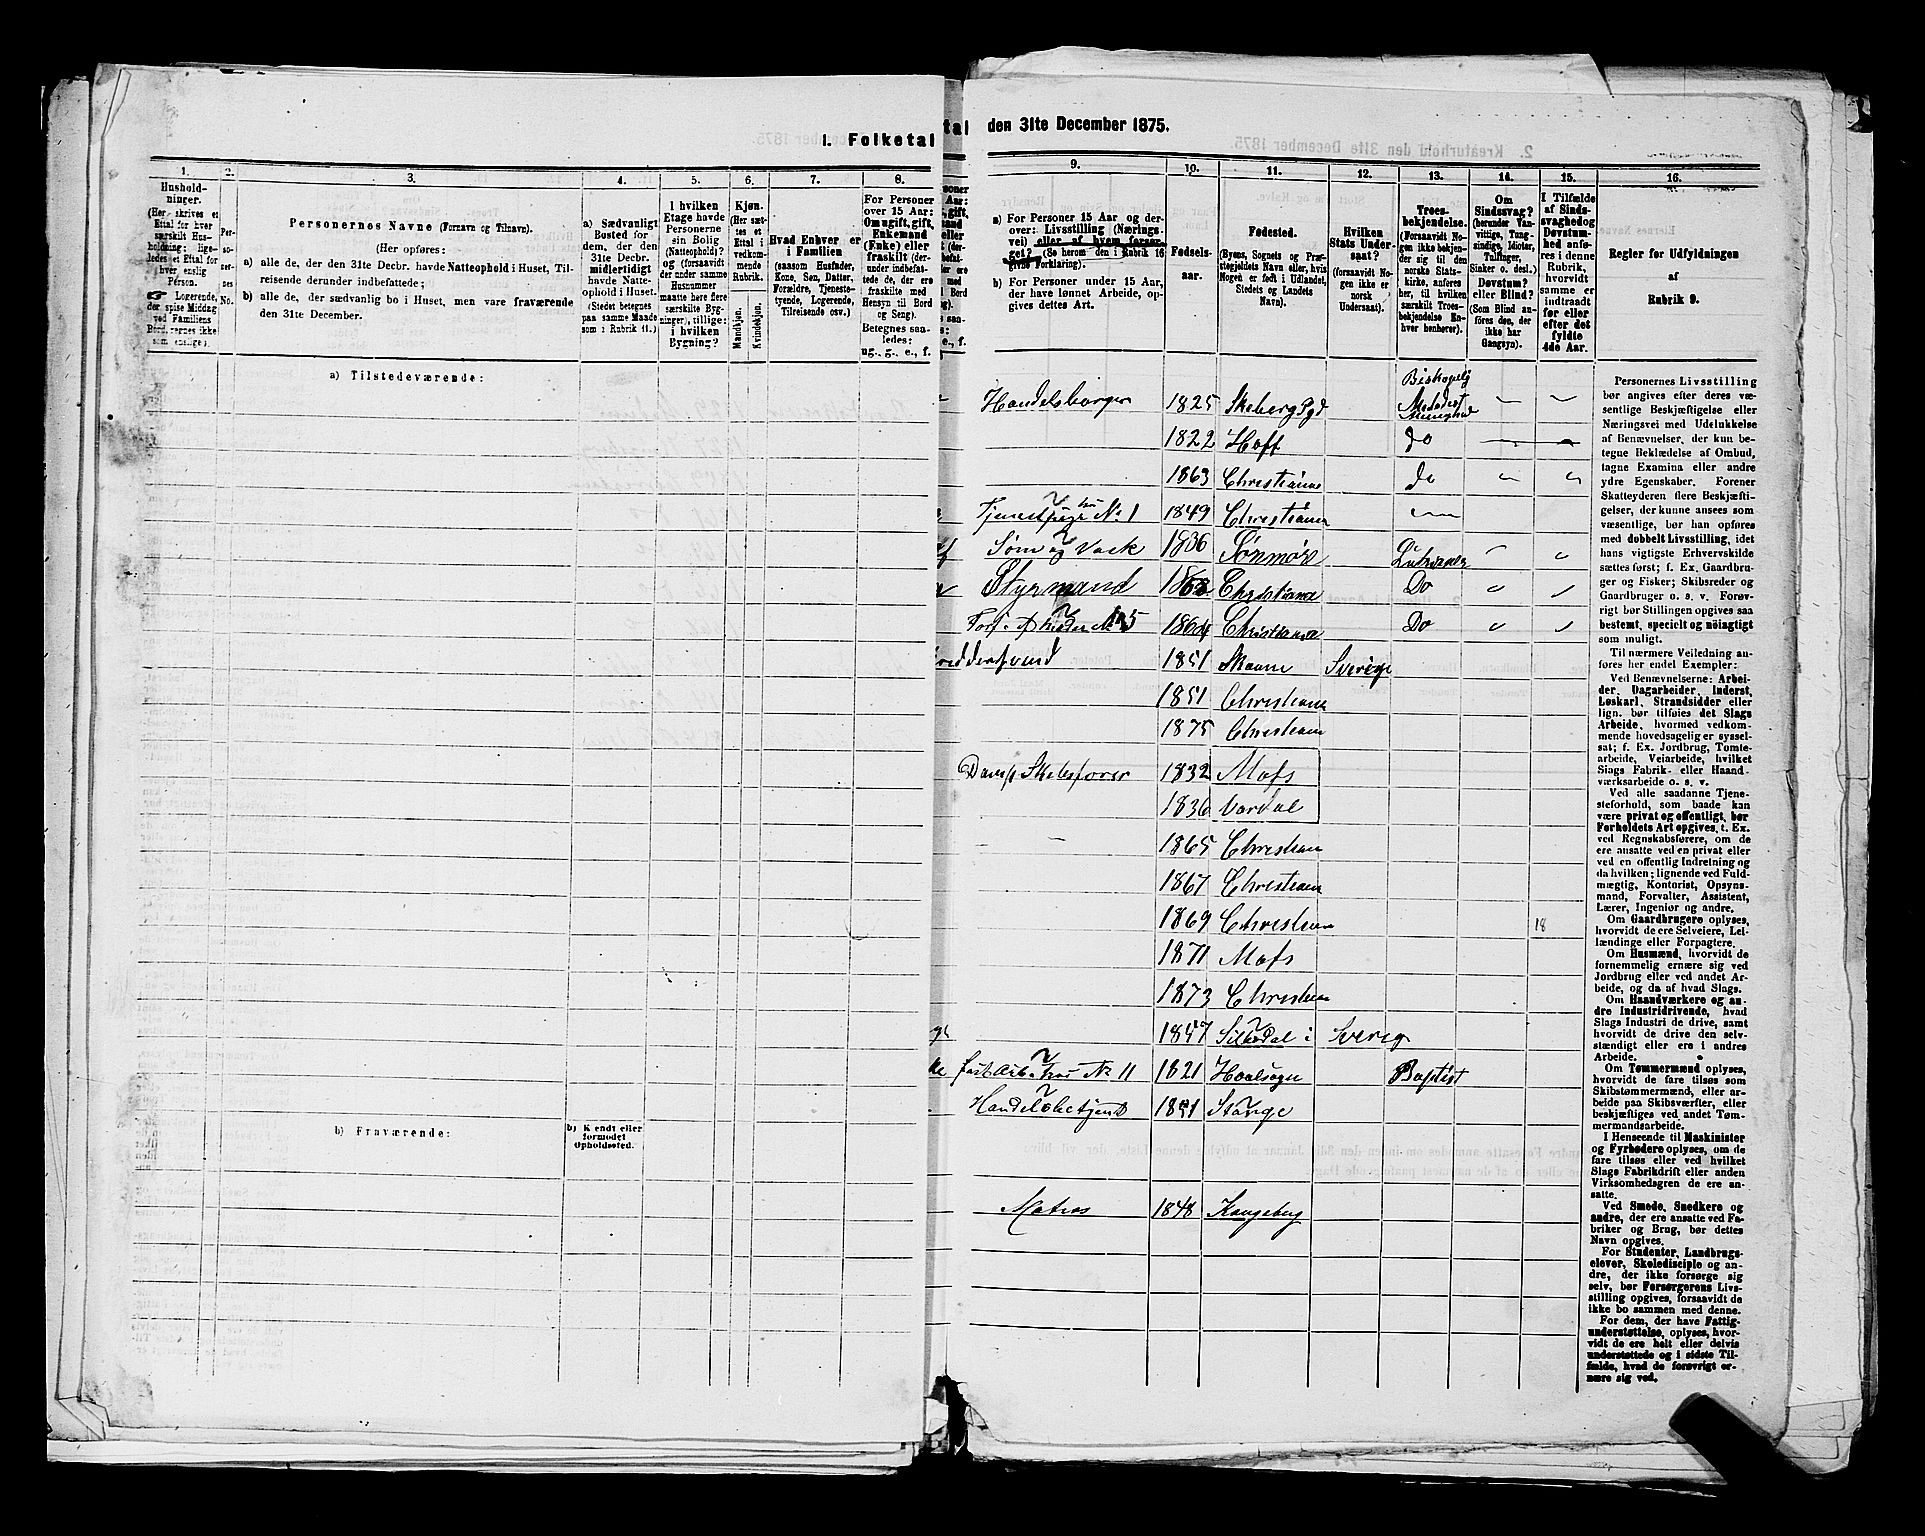 I. Folketal
tal den 31te December 1875.
1.
2.
3.
4.
5.
6.
7.
8.
Hushold-
ninger.
(Her skrives et
Ettal for hver
særskilt Hus-
holdning; lige-
ledes et Ettal for
hver enslig
Person.
☞ Logerende,
der spise Middag
ved Familiens
Bord, regnes ikke
som enslige).
Per-
so-
ner-
nes
No.
Personernes Navne (Fornavn og Tilnavn).
(Her opføres:
a) alle de, der den 31te Decbr. havde Natteophold i Huset, Til-
reisende derunder indbefattede;
b) alle de, der sædvanlig bo i Huset, men vare fraværende
den 31te December.
a) Sædvanligt
Bosted for
dem, der den
31te Decbr.
midlertidigt
havde Natte-
ophold i Huset.
(Stedet betegnes
paa samme Maade
som i Rubrik 11.)
I hvilken
Etage havde
Personerne
sin Bolig
(Natteophold)?
og (forsaavidt
der under samme
Husnummer
maatte høre flere
særskilte Byg-
ninger), tillige:
i hvilken
Bygning?
Kjøn.
(Her sæt-
tes et
Ettal i
vedkom-
mende
Rubrik.
Mandkjøn.
Kvindekjøn.
Hvad Enhver er
i Familien
(saasom Husfader,
Kone, Søn, Datter,
Forældre, Tjeneste-
tyende, Logerende,
Tilreisende osv.)
For Personer
over 15 Aar:
Om ugift, gift,
Enkemand
(Enke) eller
fraskilt (der-
under indbefat-
tede de, der ere
fraskilte med
Hensyn til Bord
og Seng).
Betegnes saa-
ledes:
ug., g., e., f.
a) Tilstedeværende:
b) Fraværende:
b) Kjendt eller
formodet
Opholdssted.
9.
10.
11.
12.
13.
14.
15.
16.
a) For Personer 15 Aar og der-
over: Livsstilling (Nærings-
vei) eller af hvem forsør-
get? (Se herom den i Rubrik 16
givne Forklaring).
b) For Personer under 15 Aar,
der have lønnet Arbeide, op-
gives dettes Art.
Fødsels-
aar.
Fødested.
(Byens, Sognets og Præ-
stegjeldets Navn eller, hvis
Nogen er født i Udlandet,
Stedets og Landets
Navn).
Hvilken
Stats Under-
saat?
(forsaavidt No-
gen ikke er
norsk
Undersaat).
Troes-
bekjendelse.
(Forsaavidt No-
gen ikke bekjen-
der sig til den
norske Stats-
kirke, anføres
her, til hvilken
særskilt Troes-
bekjendelse En-
hver henhører).
Om
Sindssvag?
(herunder Van-
vittige, Tung-
sindige, Idioter,
Tullinger,
Sinker o. desl.)
Døvstum?
eller Blind?
(Som Blind an-
føres den, der
ikke har
Gangsyn).
I Tilfælde
af Sinds-
svaghed og
Døvstum-
hed anfø-
res i denne
Rubrik,
hvorvidt
samme er
indtraadt
før eller
efter det
fyldte
4de Aar.
Regler for Udfyldningen
af
Rubrik 9.
Handelsborger 1825 Skeberg Pgd Biskopelig Metodist
1822 Hoff do
1863 Christiania do
Tjenestpige hos No 1 1849 Christiania
Søm og Vask 1836 Sønmøre Lutheraner
Styrmand Christiania Do
1864 Christiania Do
1851 Skaane Sverige
1851 Christiania
1875 Christiania
Damp Skibsfører 1832 Moss
1836 Vardal
1865 Christiania
1867 Christiania
1869 Christiania 18
1871 Moss
1873 Christiania
1847 i Sverig
hos No 11 1821 Baptist
Handelsbetjent Stange
Matros 1848
Personernes Livsstilling
bør angives efter deres væ-
sentlige Beskjæftigelse eller
Næringsvei med Udelukkelse
af Benævnelser, der kun be-
tegne Beklædelse af Ombud,
tagne Examina eller andre
ydre Egenskaber. Forener
Skatteyderen flere Beskjæfti-
gelser, der kunne ansees som
væsentlige, bør han opføres
med dobbelt Livsstilling, idet
hans vigtigste Erhvervskilde
sættes først; f. Ex. Gaardbru-
ger og Fisker; Skibsreder og
Gaardbruger o. s. v. Forøv-
rigt bør Stillingen opgives saa
bestemt, specielt og nøiagtigt
som muligt.
Til nærmere Veiledning an-
føres her endel Exempler:
Ved Benævnelserne: Arbei-
der, Dagarbeider, Inderst,
Løskarl, Strandsidder eller
lign. bør tilføies det Slags
Arbeide, hvormed vedkom-
mende hovedsagelig er syssel-
sat; f. Ex. Jordbrug, Tomte-
arbeide, Veiarbeide, hvilket
Slags Fabrik- eller Haand-
værksarbeide o. s. v.
Ved alle saadanne Tjene-
steforhold, som baade kan
være privat og offentligt, bør
Forholdets Art opgives, t. Ex.
ved Regnskabsførere, om de
ere ansatte ved en privat eller
ved en offentlig Indretning og
da hvilken; lignende ved Fuld-
mægtig, Kontorist, Opsyns-
mand, Forvalter, Assistent,
Lærer, Ingeniør og andre.
Om Gaardbrugere oplyses,
hvorvidt de ere Selveiere, Lei-
lændinge eller Forpagtere.
Om Husmænd, hvorvidt de
fornemmelig ernære sig ved
Jordbrug eller ved andet Ar-
beide, og da af hvad Slags.
Om Haandværkere og an-
dre Industridrivende, hvad
Slags Industri de drive, samt
hvorvidt de drive den selv-
stændigt eller ere i andres
Arbeide.
Om Tømmermænd oplyses,
hvorvidt de fare tilsøs som
Skibstømmermænd, eller ar-
beide paa Skibsværfter, eller
beskjæftiges ved andet Tøm-
mermandsarbeide.
I Henseende til Maskinister
og Fyrbødere oplyses, om de
fare tilsøs eller ved hvilket
Slags Fabrikdrift eller anden
Virksomhedsgren de ere an-
satte.
Ved Smede, Snedkere og
andre, der ere ansatte ved Fa-
briker og Brug, bør dettes
Navn opgives.
For Studenter, Landbrugs-
elever, Skoledisciple og an-
dre, der ikke forsørge sig
selv, bør Forsørgerens Livs-
stilling opgives, forsaavidt de
ikke bo sammen med denne.
For dem, der have Fattig-
understøttelse, oplyses, hvor-
vidt de ere helt eller delvis
understøttede og i sidste Til-
fælde, hvad de forøvrigt er-
nære sig ved.